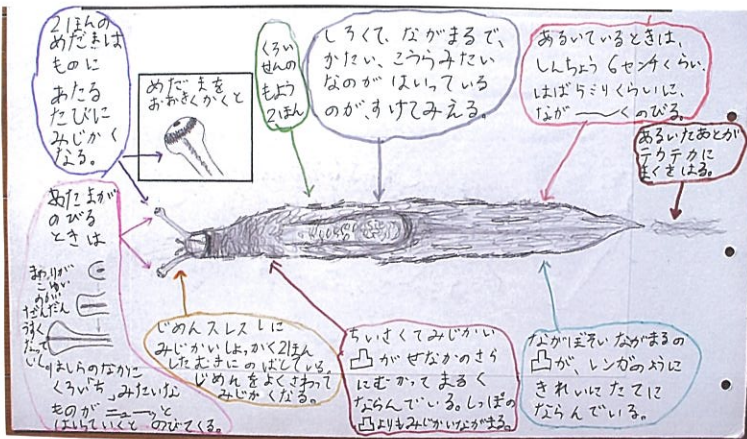 2ほんの
めだまは
ものに
あたる
たびに
みじかく
なる。
めだまを
おおきくかくと
くろい
せんの
もよう
2ほん
しろくて、ながまるで、
かたい、こうらみたい
なのが はいっている
のが、すけてみえる。
あるいているときは、
しんちょう 6センチくらい、
はば 5ミリくらいに、
なが〜〜くのびる。
あるいたあとが
テクテカに
まくをはる。
あたまが
のびる
ときは
まわりが
こゆい
のが
だんだん
うすく
なって
いく。
はしらのなかに
くろい「ち」みたいな
ものが ニューッと
はいっていくと のびてくる。
じめんスレスレに
みじかいしょっかく2ほん
したむきにのばしている。
じめんをよくさわって
みじかくなる。
ちいさくてみじかい
凸がせなかのさら
にむかって まるく
ならんでいる。しっぽの
凸よりもみじかいながまる。
ながぼそい ながまるの
凸が、レンガのように
きれいにたてに
ならんでいる。